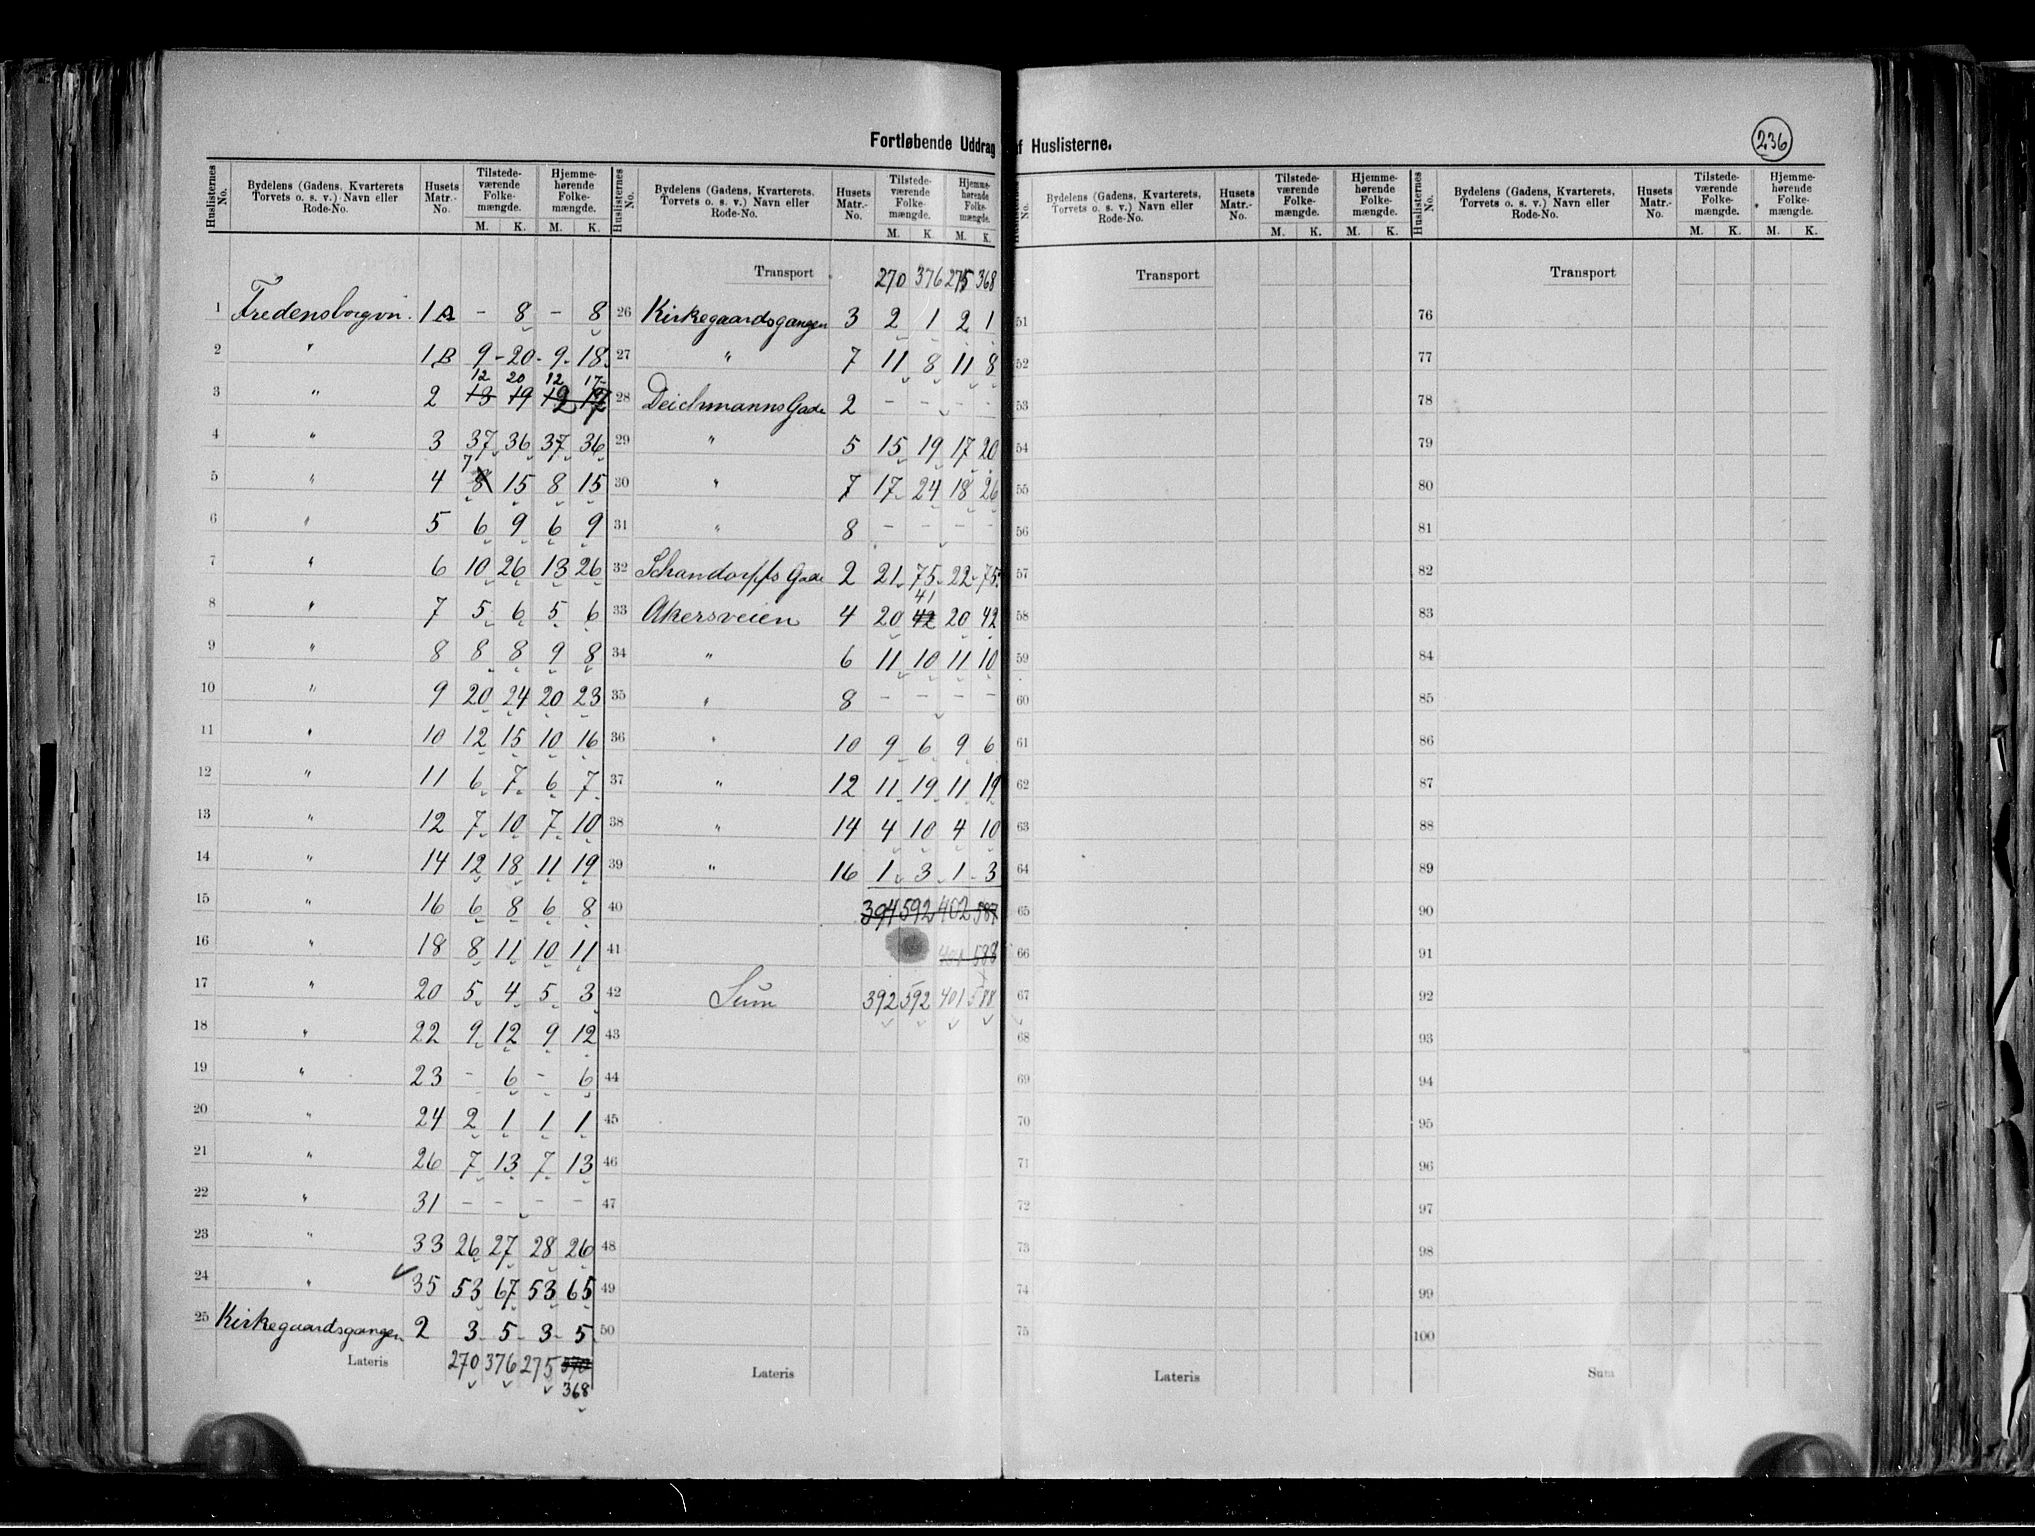 Fortløbende Uddrag af Huslisterne.
236
Huslisternes No. | Bydelens (Gadens, Kvarterets Torvets o. s. v.) Navn eller Rode-No. | Husets Matr.-No. | Tilstedeværende Folkemængde. M. K. | Hjemmehørende Folkemængde. M. K.
1 Fredensborgvn. 1A - 8 - 8
2 " 1B 9 20 9 18
12 20 12 17
3 " 2 13 19 12 17
4 " 3 37 36 37 36
7
5 " 4 8 15 8 15
6 " 5 6 9 6 9
7 " 6 10 26 13 26
8 " 7 5 6 5 6
9 " 8 8 8 9 8
10 " 9 20 24 20 23
11 " 10 12 15 10 16
12 " 11 6 7 6 7
13 " 12 7 10 7 10
14 " 14 12 18 11 19
15 " 16 6 8 6 8
16 " 18 8 11 10 11
17 " 20 5 4 5 3
18 " 22 9 12 9 12
19 " 23 - 6 - 6
20 " 24 2 1 1 1
21 " 26 7 13 7 13
22 " 31 - - - -
23 " 33 26 27 28 26
24 " 35 53 67 53 65
25 Kirkegaardsgangen 2 3 5 3 5
Lateris 270 376 275 370
368
Huslisternes No. | Bydelens (Gadens, Kvarterets, Torvets o. s. v.) Navn eller Rode-No. | Husets Matr.-No. | Tilstedeværende Folkemængde. M. K. | Hjemmehørende Folkemængde. M. K.
Transport 270 376 275 368
26 Kirkegaardsgangen 3 2 1 2 1
27 " 7 11 8 11 8
28 Deichmanns Gade 2 - - - -
29 " 5 15 19 17 20
30 " 7 17 24 18 26
31 " 8 - - - -
32 Schandorffs Gade 2 21 75 22 75
41
33 Akersveien 4 20 42 20 42
34 " 6 11 10 11 10
35 " 8 - - - -
36 " 10 9 6 9 6
37 " 12 11 19 11 19
38 " 14 4 10 4 10
39 " 16 1 3 1 3
40 394 592 402 587
41 401 588
42 Sum 392 592 401 588
43
44
45
46
47
48
49
50
Lateris
Huslisternes No. | Bydelens (Gadens, Kvarterets, Torvets o. s. v.) Navn eller Rode-No. | Husets Matr.-No. | Tilstedeværende Folkemængde. M. K. | Hjemmehørende Folkemængde. M. K.
Transport
51
52
53
54
55
56
57
58
59
60
61
62
63
64
65
66
67
68
69
70
71
72
73
74
75
Lateris
Huslisternes No. | Bydelens (Gadens, Kvarterets, Torvets o. s. v.) Navn eller Rode-No. | Husets Matr.-No. | Tilstedeværende Folkemængde. M. K. | Hjemmehørende Folkemængde. M. K.
Transport
76
77
78
79
80
81
82
83
84
85
86
87
88
89
90
91
92
93
94
95
96
97
98
99
100
Sum